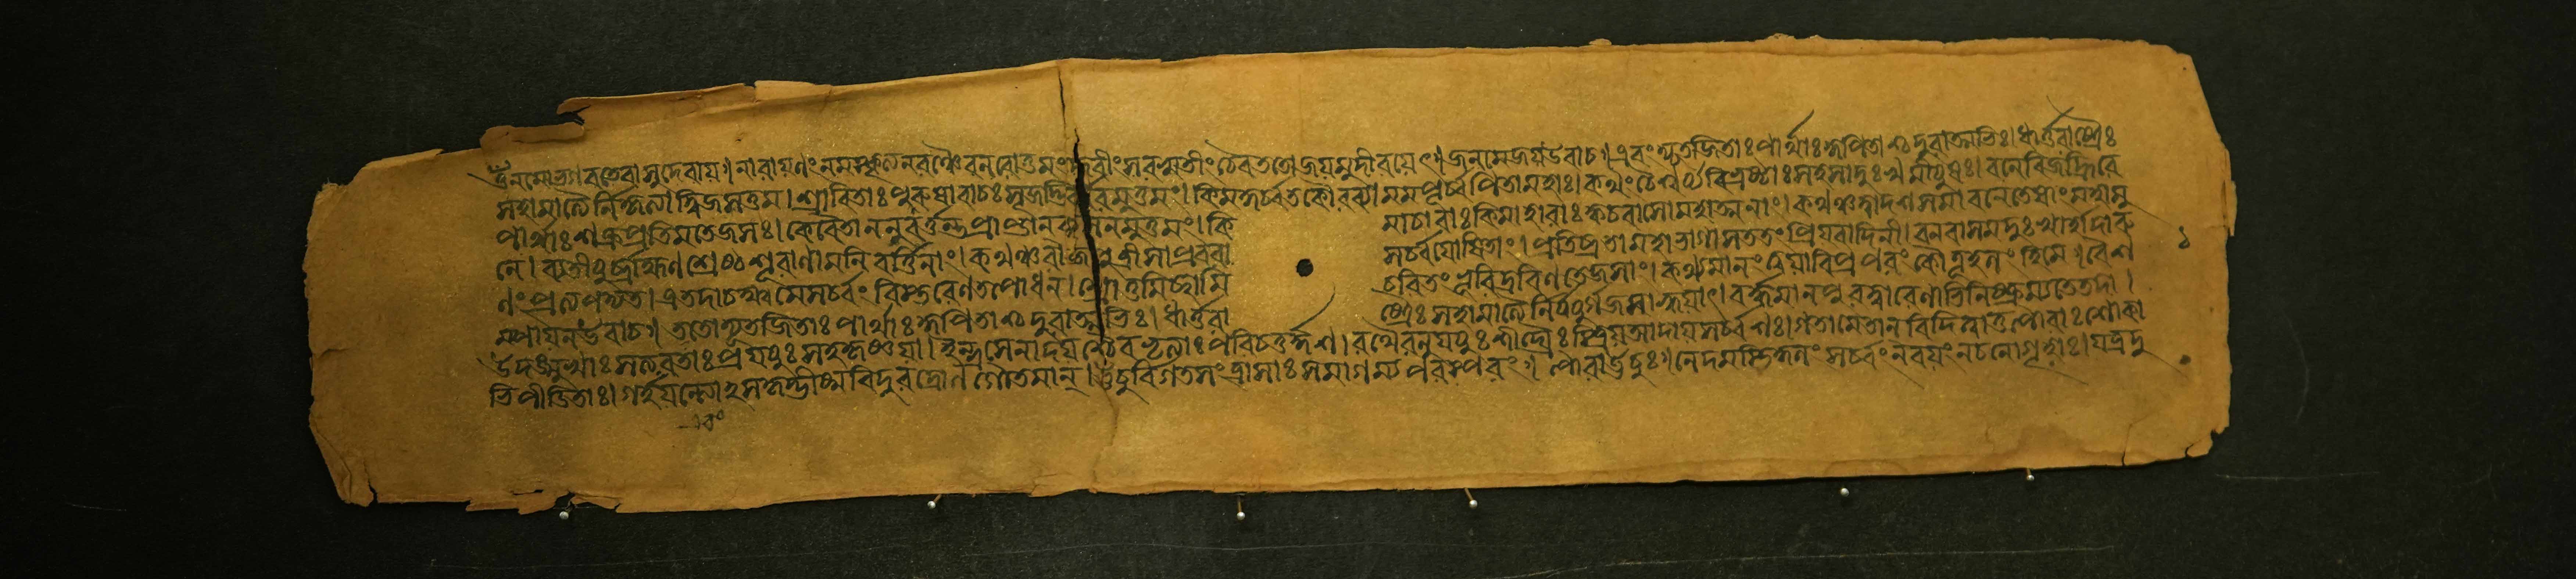 ওঁ নমো ভগবতে বাসুদেবায়। নারায়ণং নমস্কৃত্য নরঞ্চৈব নরোত্তমং। দেবীং সরস্বতীং চৈব ততো জয়মুদীরয়েৎ। জনমেজয় উবাচ। এবং দ্যূতজিতাঃ পার্থাঃ কোপিতাশ্চ দুরাত্মভিঃ। ধার্ত্তরাষ্ট্রৈঃ
সহামাত্যৈর্নিকৃত্যা দ্বিজসত্তম। শ্রাবিতাঃ পরুষা বাচঃ সৃজদ্ভির্বৈরমুত্তমং। কিমকুর্ব্বত কৌরব্যা মম পূর্ব্বপিতামহাঃ। কথং চৈশ্বর্য্যবিভ্রষ্টাঃ সহসা দুঃখমীয়ুষঃ। বনে বিজহ্রিরে
পার্থাঃ শক্রপ্রতিমতেজসঃ। কে বৈ তানন্ববর্ত্তন্ত প্রাপ্তান্ ব্যসনমুত্তমং। কি মাচারাঃ কিমাহারাঃ ক্ব চ বাসো মহাত্মনাং। কথঞ্চ দ্বাদশ সমা বনে তেষাং মহামু
নে। ব্যতীয়ুর্ব্রাহ্মণশ্রেষ্ঠ শূরাণামনিবর্ত্তিনাং। কথঞ্চ রাজপুত্রী সা প্রবরা সর্ব্বযোষিতাং। পতিব্রতা মহাভাগা সততং প্রিয়বাদিনী। বনবাসমদুঃখার্হা দারু
ণং প্রত্যপদ্যত। এতদাচক্ষ্ব মে সর্ব্বং বিস্তরেণ তপোধন। শ্রোতুমিচ্ছামি চরিতং ভূরিদ্রবিণতেজসাং। কথ্যমানং ত্বয়া বিপ্র পরং কৌতূহলং হি মে। বৈশ
ম্পায়ন উবাচ। ততো দ্যূতজিতাঃ পার্থাঃ কোপিতাশ্চ দুরাত্মভিঃ। ধার্ত্তরা ষ্ট্রৈঃ সহামাত্যৈর্নির্যযুর্গজসাহ্বয়াৎ। বর্দ্ধমানপুরদ্বারেণাভিনিষ্ক্রম্য তে তদা।
উদঙ্মুখাঃ শস্ত্রভৃতাঃ প্রযযুঃ সহ কৃষ্ণয়া। ইন্দ্রসেনাদয়শ্চৈব ভৃত্যাঃ পরিচতুর্দ্দশ। রথৈরনুযযুঃ শীঘ্রৈঃ স্ত্রিয় আদায় সর্ব্বশঃ। গতানেতান্ বিদিত্বা তু পৌরাঃ শোকা
ভিপীড়িতাঃ। গর্হয়ন্তোঽসকৃদ্ভীষ্মবিদুরদ্রোণগৌতমান্। ঊচুর্বিগতসংত্রাসাঃ সমাগম্য পরস্পরং। পৌরা ঊচুঃ। নেদমস্তি কুলং সর্ব্বং ন বয়ং ন চ নো গৃহাঃ। যত্র দু
১